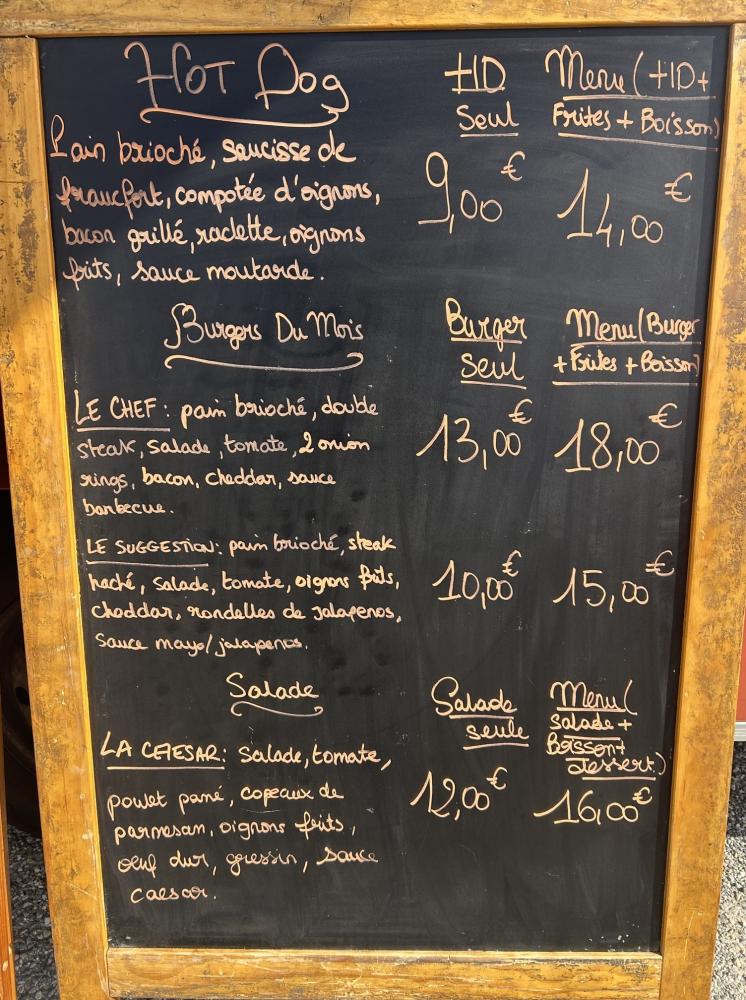 Hot Dog
HD Seul
Menu (HD+ Frites + Boisson)
Pain brioché, saucisse de
francfort, compotée d'oignons,
bacon grillé, raclette, oignons
frits, sauce moutarde.
9,00 €
14,00 €
Burgers Du Mois
Burger Seul
Menu (Burger + Frites + Boisson)
LE CHEF : pain brioché, double
steak, salade, tomate, 2 onion
rings, bacon, cheddar, sauce
barbecue.
13,00 €
18,00 €
LE SUGGESTION : pain brioché, steak
haché, salade, tomate, oignons frits,
cheddar, rondelles de jalapenos,
sauce mayo/jalapenos.
10,00 €
15,00 €
Salade
Salade seule
Menu (Salade + Boisson + dessert)
LA CAESAR : salade, tomate,
poulet pané, copeaux de
parmesan, oignons frits,
oeuf dur, gressin, sauce
caesar.
12,00 €
16,00 €